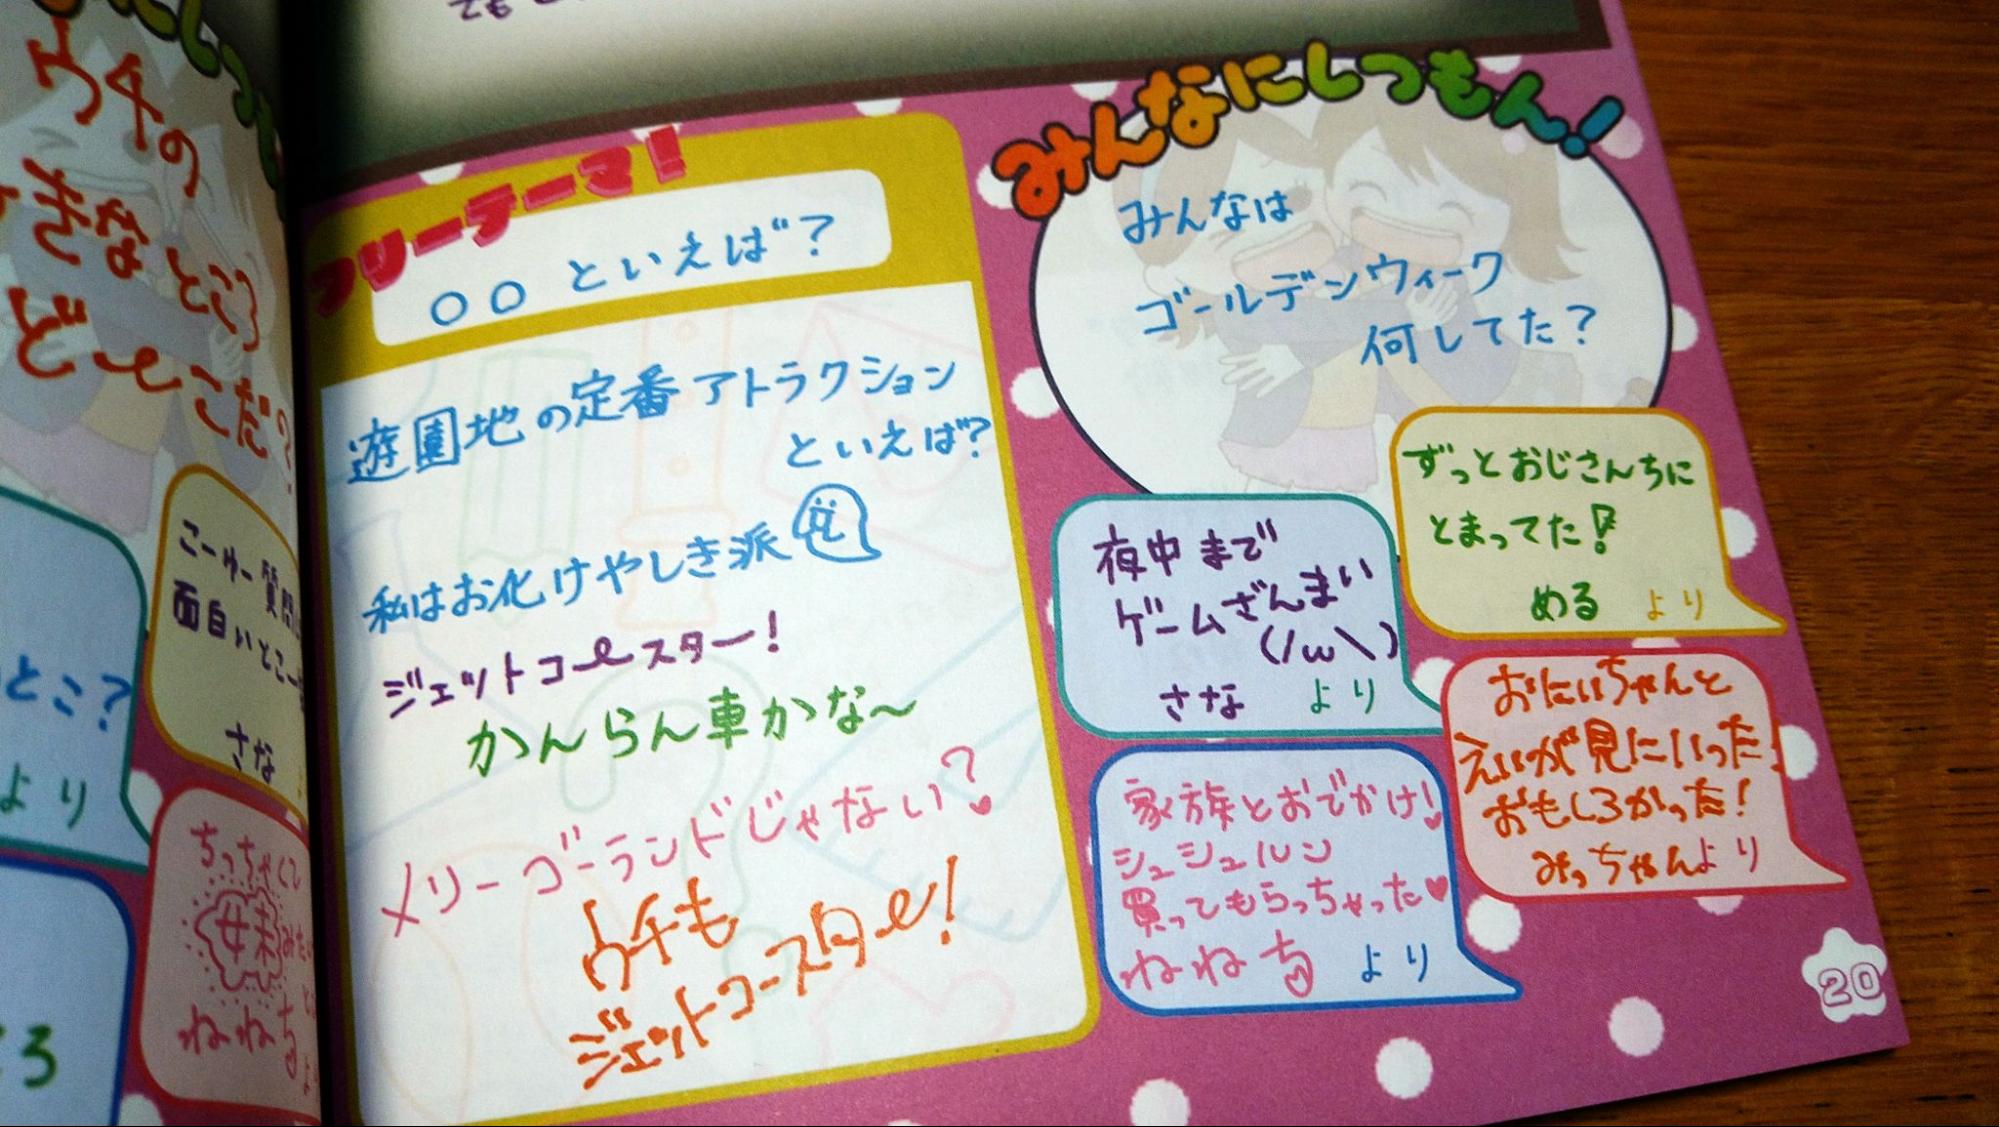 ウチの
きなところ
どーこだ?
こーゆー質問
面白いとこ
さな
とこ?
より
ちっちゃくて
妹みたい
ねねち
フリーテーマ!
〇〇といえば?
遊園地の定番アトラクション
といえば?
私はお化けやしき派
ジェットコースター!
かんらん車かな〜
メリーゴーランドじゃない?
ウチも
ジェットコースター!
みんなにしつもん!
みんなは
ゴールデンウィーク
何してた?
ずっとおじさんちに
とまってた!
める より
夜中まで
ゲームざんまい
(/ω\)
さな より
おにいちゃんと
えいが見にいった!
おもしろかった!
みっちゃんより
家族とおでかけ!
シュシュルン
買ってもらっちゃった♥
ねねち より
20